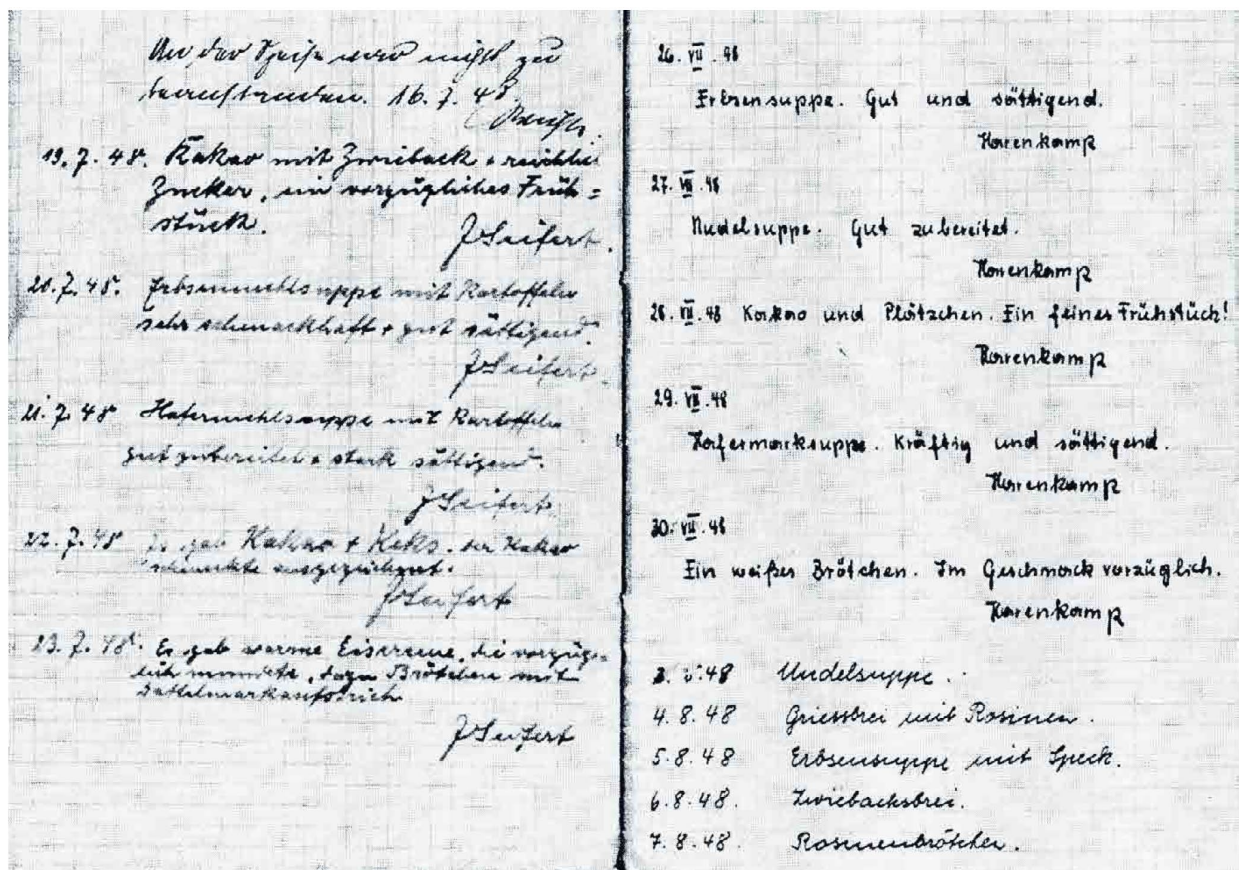 An der Speise war nichts zu
beanstanden. 16.7.48.
19.7.48. Kakao mit Zwieback + reichlich
Zucker, ein vorzügliches Früh=
stück.
J Seifert.
20.7.48. Erbsenmehlsuppe mit Kartoffeln
sehr schmackhaft + gut sättigend.
J Seifert.
21.7.48 Hafermehlsuppe mit Kartoffeln
gut zubereitet + stark sättigend.
J Seifert
22.7.48 Es gab Kakao + Keks. der Kakao
schmeckte ausgezeichnet.
J Seifert
23.7.48. Es gab warme Eiscreme, die vorzüg-
lich mundete, dazu Brötchen mit
J Seifert
26. VII. 48
Erbsensuppe. Gut und sättigend.
Havenkamp
27. VII. 48
Nudelsuppe. Gut zubereitet.
Havenkamp
28. VII. 48 Kakao und Plätzchen. Ein feines Frühstück!
Havenkamp
29. VII. 48
Hafermarksuppe. Kräftig und sättigend.
Havenkamp
30. VII. 48
Ein weißes Brötchen. Im Geschmack vorzüglich.
Havenkamp
Nudelsuppe.
4.8.48 Griessbrei mit Rosinen.
5.8.48 Erbsensuppe mit Speck.
6.8.48. Zwiebacksbrei.
7.8.48 Rosinenbrötchen.